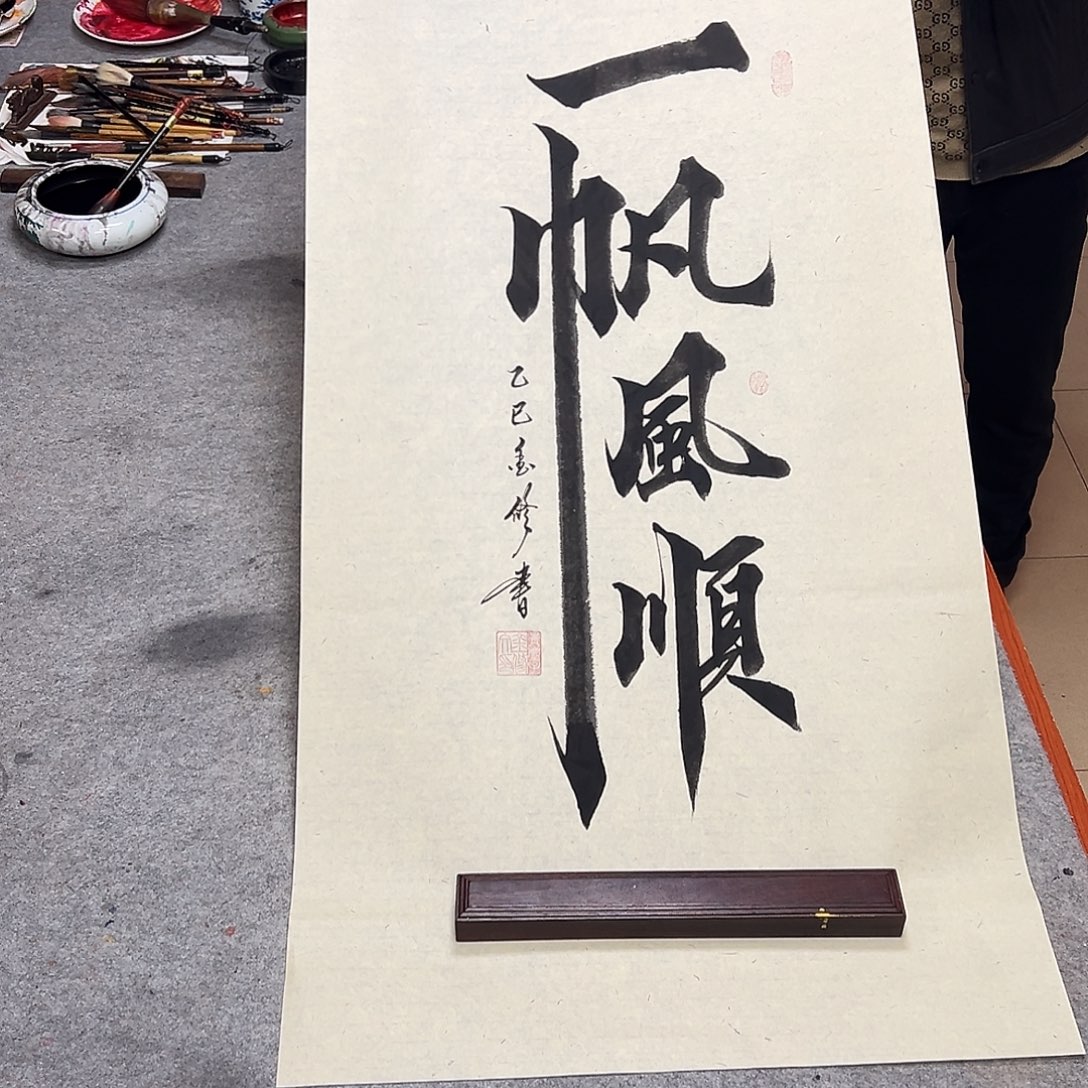 一帆風順
乙巳金修書